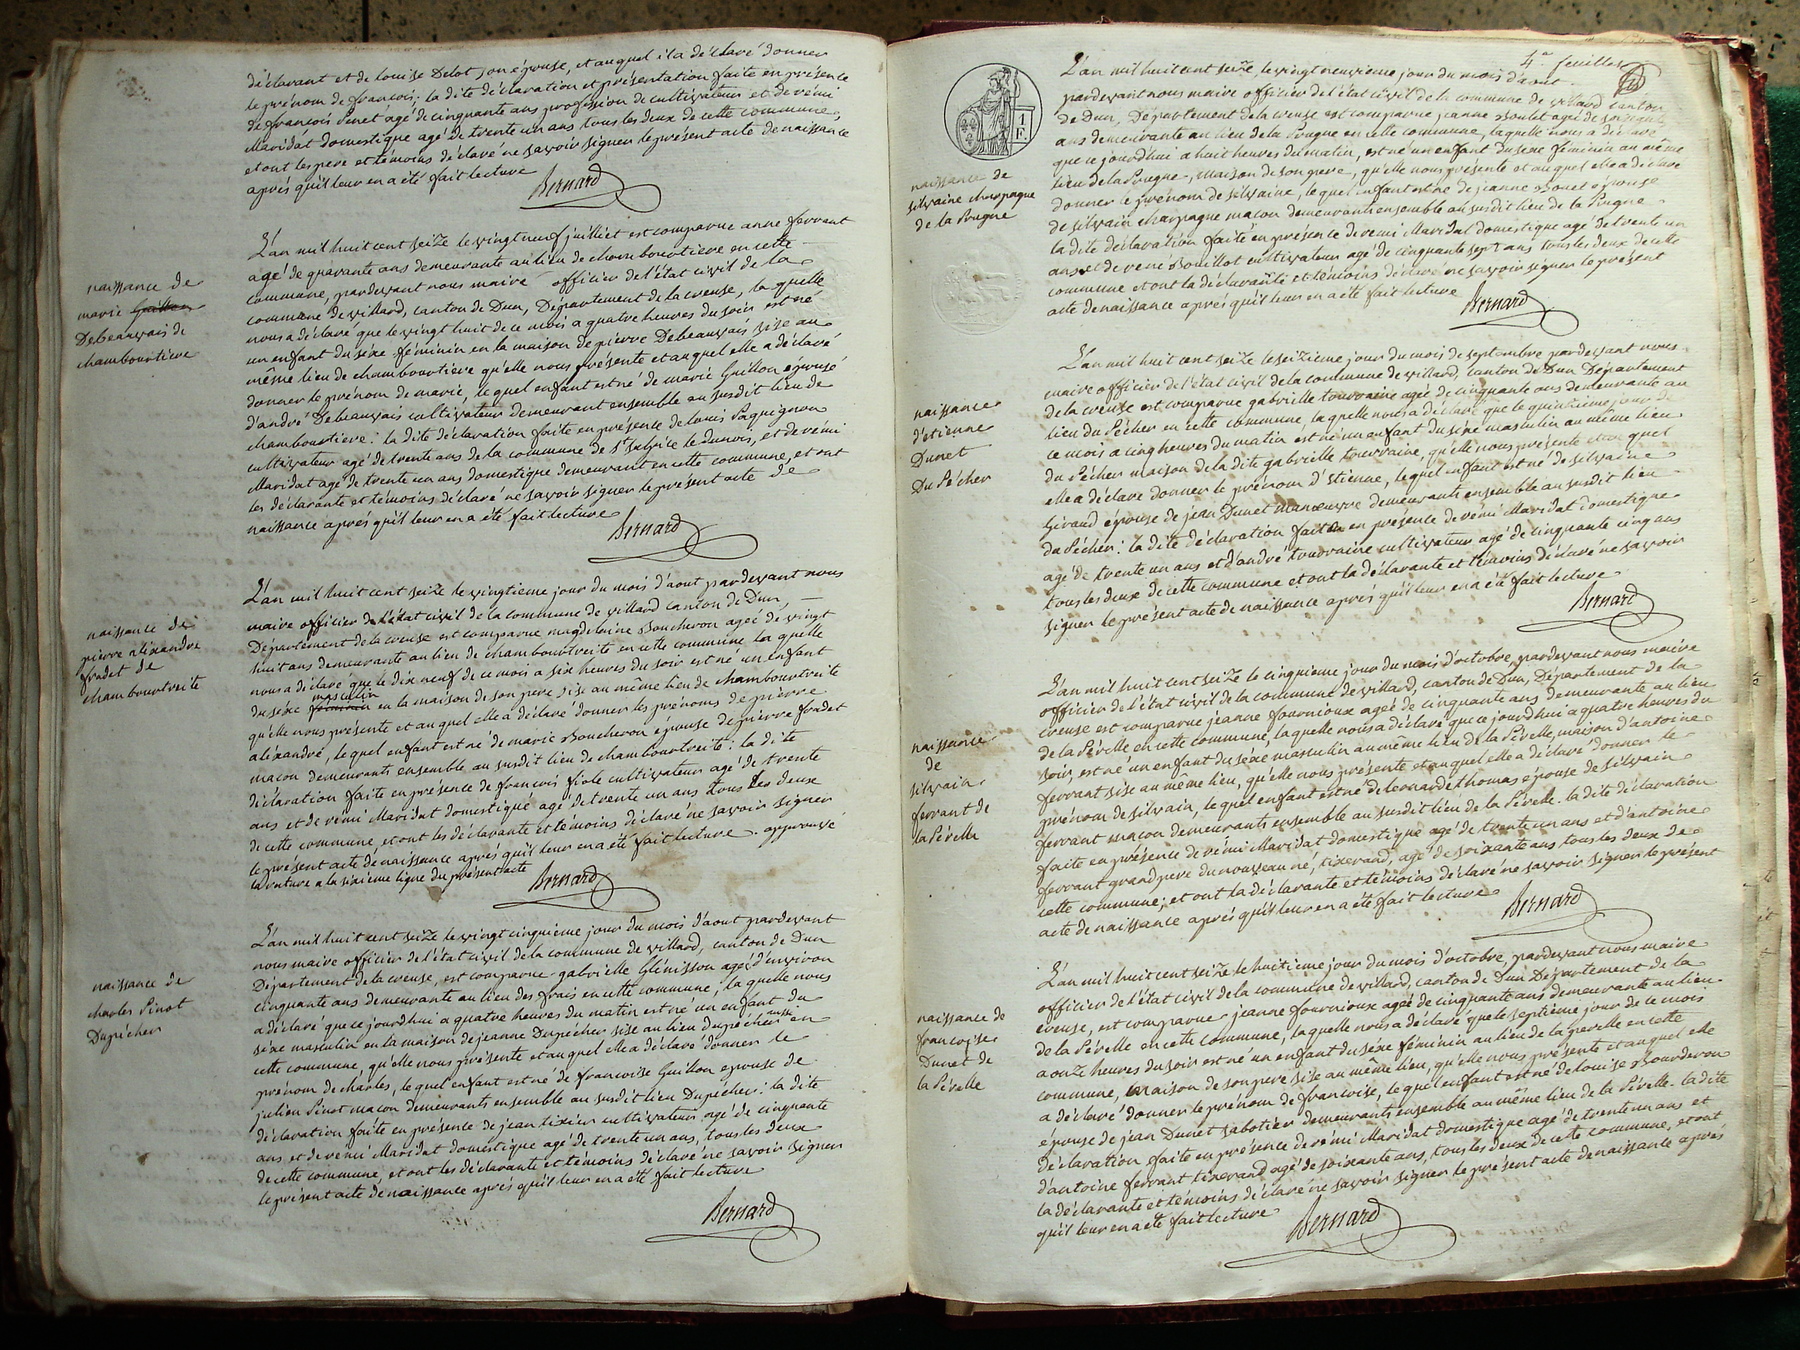 déclarant et de louise Delot son épouse, et auquel il a déclaré donner
le prénom de françois; la dite déclaration et présentation faite en présence
de françois Penet agé de cinquante ans profession de cultivateur et de rémi
Maridat domestique agé de trente un ans tous les deux de cette commune,
et ont les pere et témoins déclaré ne savoir signer le présent acte de naissance
aprés qu'il leur en a été fait lecture
Bernard
naissance de
marie Guillon
Debeauvais de
chambourtiere
L'an mil huit cent seize le vingt neuf juilliet est comparue anne ferrant
agé de quarante ans demeurante au lieu de chambourtiere en cette
commune, pardevant nous maire officier de l'état civil de la
commune de villard, canton de Dun, Département de la creuse, la quelle
nous a déclaré que le vingt huit de ce mois a quatre heures du soir est né
un enfant du séxe féminin en la maison de pierre Debeauvais sise au
même lieu de chambourtiere qu'elle nous présente et auquel elle a déclaré
donner le prénom de marie, le quel enfant est né de marie Guillon épouse
d'andré Debeauvais cultivateur demeurant ensemble au susdit lieu de
chambourtiere: la dite déclaration faite en présence de louis Paquignon
cultivateur agé de trente ans de la commune de St sulpice le Dunois, et de rémi
Maridat agé de trente un ans domestique demeurant en cette commune, et ont
les déclarante et témoins déclaré ne savoir signer le présent acte de
naissance aprés qu'il leur en a été fait lecture
Bernard
naissance de
pierre aléxandre
fradet de
chambourtreite
L'an mil huit cent seize le vingtieme jour du mois d'aout pardevant nous
maire officier de l'état civil de la commune de villard canton de Dun,
Département de la creuse est comparue magdeleine Boucheron ageé de vingt
huit ans demeurante au lieu de chambourtreite en cette commune la quelle
nous a déclaré que le dix neuf de ce mois a six heures du soir est né un enfant
masculin
du séxe féminin en la maison de son pere sise au même lieu de chambourtreite
qu'elle nous présente et auquel elle a déclaré donner les prénoms de pierre
aléxandre, le quel enfant est né de marie Boucheron épouse de pierre fradet
macon demeurants ensemble au susdit lieu de chambourtreite: la dite
déclaration faite en présence de francois fiole cultivateur agé de trente
ans et de rémi Maridat domestique agé de trente un ans tous les deux
de cette commune, et ont les déclarante et témoins déclaré ne savoir signer
le présent acte de naissance aprés qu'il leur en a été fait lecture. approuvé
la rature a la sixieme ligne du présent acte
Bernard
naissance de
charles Pinot
Dupécher
L'an mil huit cent seize le vingt cinquieme jour du mois d'aout pardevant
nous maire officier de l'état civil de la commune de villard, canton de Dun
Département de la creuse, est comparue gabrielle Glénisson ageé d'environ
cinquante ans demeurante au lieu des frais en cette commune, la quelle nous
a déclaré que ce jourdhui a quatre heures du matin est né un enfant du
séxe masculin en la maison de jeanne Dupécher sise au lieu dupécher aussi en
cette commune, qu'elle nous présente et auquel elle a déclaré donner le
prénom de charles, le quel enfant est né de francoise Guillon épouse de
julien Pinot macon demeurants ensemble au susdit lieu Dupécher: la dite
déclaration faite en présence de jean tixier cultivateur agé de cinquante
ans et de rémi Maridat domestique agé de trente un ans, tous les deux
de cette commune, et ont les déclarante et témoins déclaré ne savoir signer
le présent acte de naissance aprés qu'il leur en a été fait lecture
Bernard
4e feuillet
1
F.
naissance de
silvaine charpagne
de la Prugne
L'an mil huit cent seize, le vingt neuvieme jour du mois d'aout
pardevant nous maire officier de l'état civil de la commune de villard canton
de Dun, Département de la creuse est comparue jeanne Boulet agé de soixante
ans demeurante au lieu de la Prugne en cette commune, la quelle nous a déclaré
que ce jourd'hui a huit heures du matin, est né un enfant du séxe féminin au même
lieu de la Prugne, maison de son pere, qu'elle nous présente et auquel elle a déclaré
donner le prénom de silvaine, le quel enfant est né de jeanne Bouet épouse
de silvain charpagne macon demeurants ensemble au susdit lieu de la Prugne
la dite déclaration faite en présence de rémi Maridat domestique agé de trente un
ans et de rené Bouillot cultivateur agé de cinquante sept ans tous les deux de cette
commune et ont la déclarante et témoins déclaré ne savoir signer le présent
acte de naissance aprés qu'il leur en a été fait lecture
Bernard
naissance
d'étienne
Dunet
Du Pécher
L'an mil huit cent seize le seizieme jour du mois de septembre pardevant nous
maire officier de l'état civil de la commune de villard, canton de Dun Département
de la creuse est comparue gabrielle touvraine ageé de cinquante ans demeurante au
lieu du Pécher en cette commune, la quelle nous a déclaré que le quinzieme jour de
ce mois a cinq heures du matin est né un enfant du séxe masculin au même lieu
du Pécher maison de la dite gabrielle touvraine, qu'elle nous présente et au quel
elle a déclaré donner le prénom d'étienne, le quel enfant est né de silvaine
Giraud épouse de jean Dunet manoeuvre demeurants ensemble au susdit lieu
du Pécher: la dite déclaration faite en présence de rémi Maridat domestique
agé de trente un ans et d'andré touvraine cultivateur agé de cinquante cinq ans
tous les deux de cette commune et ont la déclarante et témoins déclaré ne savoir
signer le présent acte de naissance apres qu'il leur en a été fait lecture
Bernard
naissance
de
silvain
ferrant de
la Pérelle
L'an mil huit cent seize le cinquieme jour du mois d'octobre, pardevant nous maire
officier de l'état civil de la commune de villard, canton de Dun, Département de la
creuse est comparue jeanne fournioux ageé de cinquante ans demeurante au lieu
de la Pérelle en cette commune, la quelle nous a déclaré que ce jourd'hui a quatre heures du
soir, est né un enfant du séxe masculin au même lieu de la Pérelle, maison d'antoine
ferrant sise au même lieu, qu'elle nous présente et auquel elle a déclaré donner le
prénom de silvain, le quel enfant est né de leonarde thomas épouse de silvain
ferrant macon demeurants ensemble au susdit lieu de la Pérelle. la dite déclaration
faite en présence de rémi Maridat domestique agé de trente un ans et d'antoine
ferrant grand pere du nouveau né, tixerand, agé de soixante ans tous les deux de
cette commune, et ont la déclarante et témoins déclaré ne savoir signer le présent
acte de naissance aprés qu'il leur en a été fait lecture
Bernard
naissance de
francoise
Dunet de
la Pérelle
L'an mil huit cent seize le huitieme jour du mois d'octobre, pardevant nous maire
officier de l'état civil de la commune de villard, canton de Dun Département de la
creuse, est comparue jeanne fournioux ageé de cinquante ans demeurante au lieu
de la Pérelle en cette commune, la quelle nous a déclaré que le septieme jour de ce mois
a onze heures du soir est né un enfant du séxe féminin au lieu de la perelle en cette
commune, maison de son pere sise au même lieu, qu'elle nous présente et auquel elle
a déclaré donner le prénom de francoise, le quel enfant est né de louise Bourderon
épouse de jean Dunet sabotier demeurants ensemble au même lieu de la Pérelle. la dite
déclaration faite en présence de rémi Maridat domestique agé de trente un ans et
d'antoine ferrant tixerand agé de soixante ans, tous les deux de cette commune, et ont
la déclarante et témoins déclaré ne savoir signer le présent acte de naissance aprés
qu'il leur en a été fait lecture
Bernard